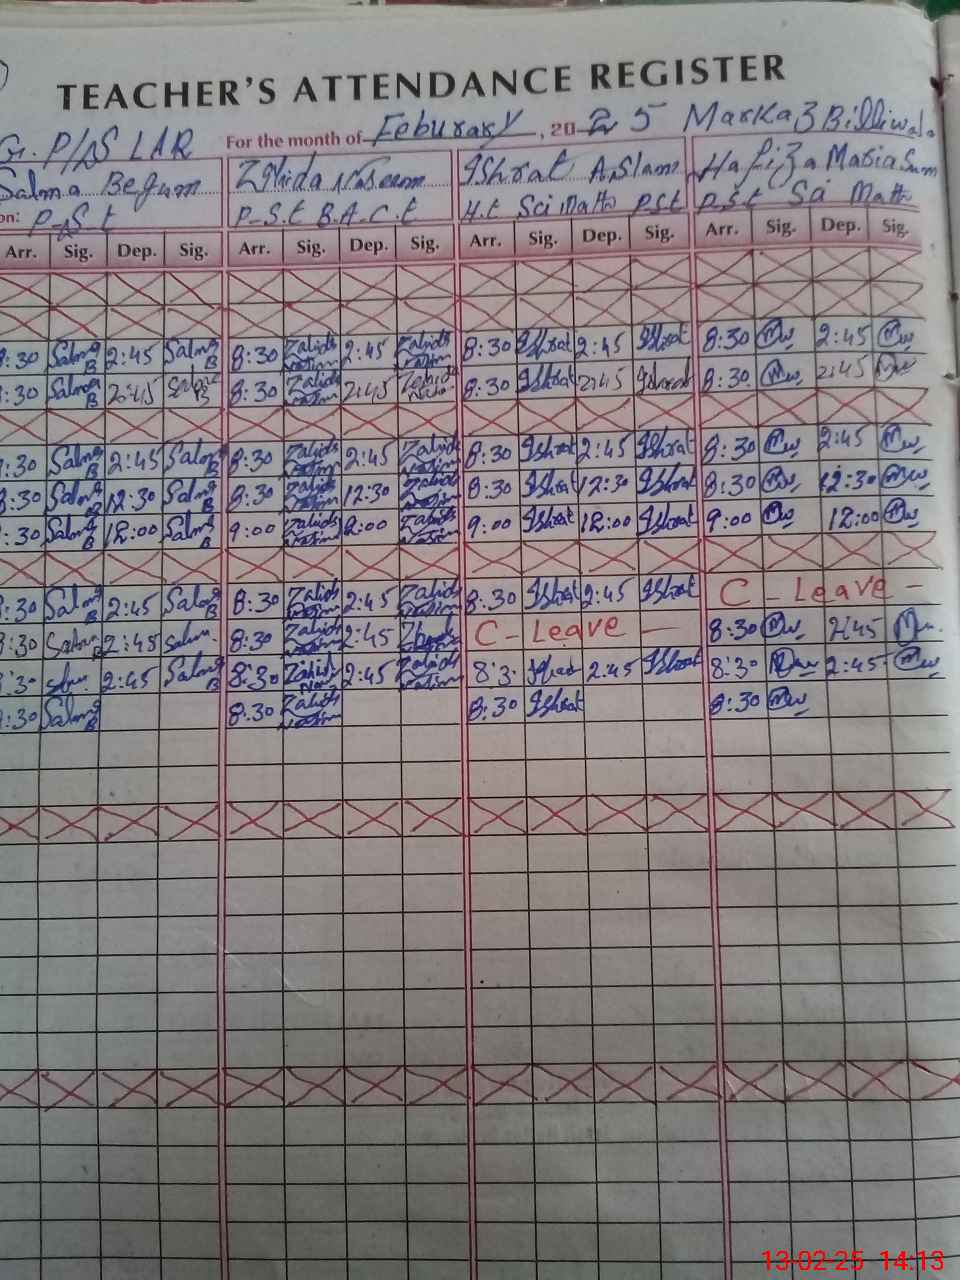 TEACHER'S ATTENDANCE REGISTER
G. P/S LAR For the month of Feburary, 2025 Markaz Billiwala
Salma Begum Zahida Naseem Ishrat Aslam Hafiza Maria Sum
on: P-S-t P-S.t B.A.C.t H.t Sci Math P.S.t P.S.t Sci Math
Arr. Sig. Dep. Sig. Arr. Sig. Dep. Sig. Arr. Sig. Dep. Sig. Arr. Sig. Dep. Sig.
:30 Salma B 2:45 Salma B 8:30 Zahida Nasim 2:45 Zahida Nasim 8:30 Ishrat 2:45 Ishrat 8:30 Mw 2:45 Mw
:30 Salma B 2:45 Salma B 8:30 Zahida Nasim 2:45 Zahida 8:30 Ishrat 2:45 Ishrat 8:30 Mw 2:45 Mw
:30 Salma B 2:45 Salma B 8:30 Zahida Nasim 2:45 Zahida Nasim 8:30 Ishrat 2:45 Ishrat 8:30 Mw 2:45 Mw
8:30 Salma B 12:30 Salma B 8:30 Zahida Nasim 12:30 Zahida Nasim 8:30 Ishrat 12:30 Ishrat 8:30 Mw 12:30 Mw
:30 Salma B 12:00 Salma B 9:00 Zahida Nasim 12:00 Zahida Nasim 9:00 Ishrat 12:00 Ishrat 9:00 Mw 12:00 Mw
:30 Salma B 2:45 Salma B 8:30 Zahida Nasim 2:45 Zahida Nasim 8:30 Ishrat 2:45 Ishrat C - Leave -
8:30 Salma B 2:45 Salma 8:30 Zahida Nasim 2:45 C - Leave - 8:30 Mw 2:45 Mw
:30 2:45 Salma B 8:30 Zahida 2:45 Zahida Nasim 8:3. Ishrat 2:45 Ishrat 8:30 Mw 2:45 Mw
:30 Salma B 8:30 Zahida Nasim 8:30 Ishrat 8:30 Mw
13-02-25 14:13